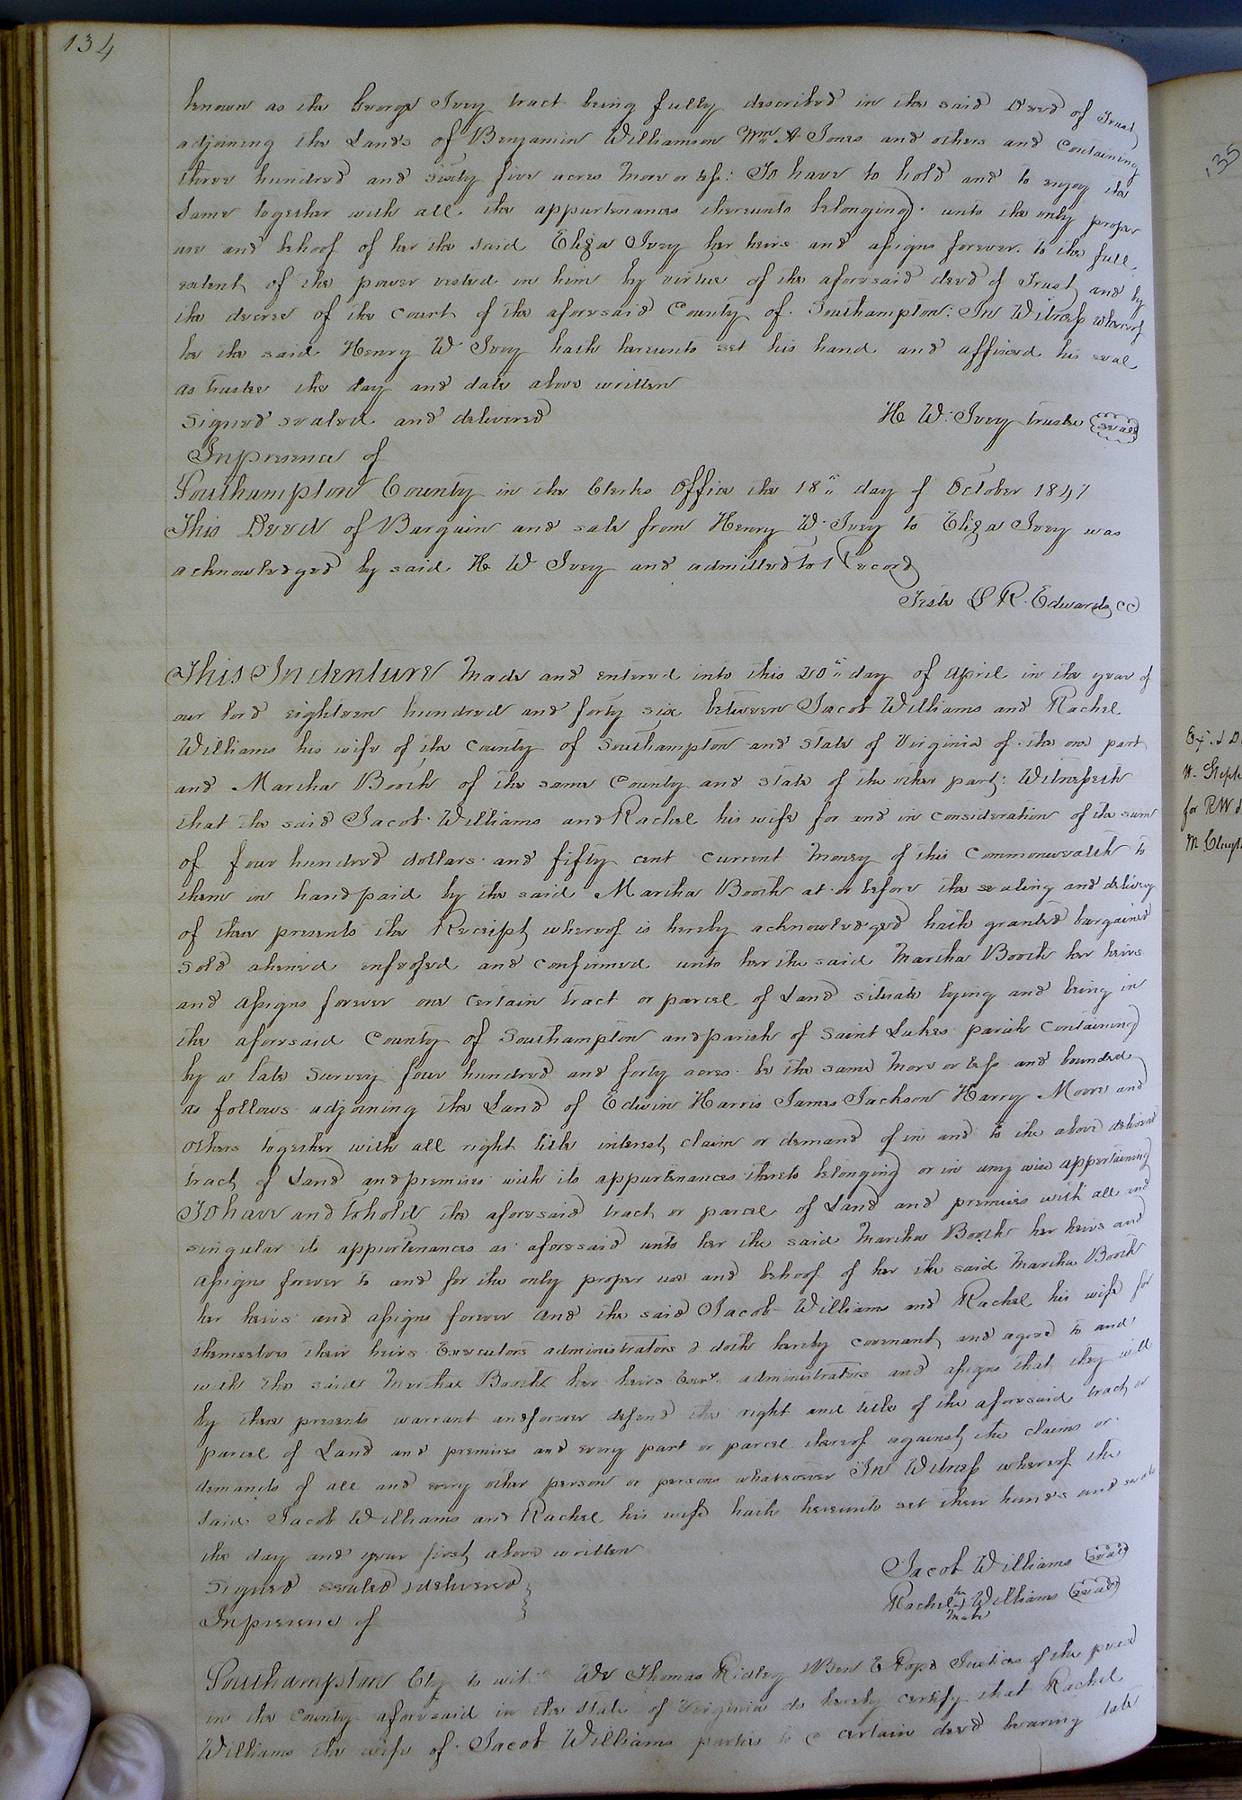 134
known as the George Ivey tract being fully described in the said Deed of Trust
adjoining the Lands of Benjamin Williamson Wm A Jones and others and Containing
three hundred and sixty five acres more or less: To have to hold and to enjoy the
same together with all the appurtenances thereunto belonging unto the only proper
use and behoof of her the said Eliza Ivey her heirs and assigns forever. to the full
extent of the power vested in him by virtue of the aforesaid deed of Trust and by
the decree of the Court of the aforesaid County of Southampton: In Witness whereof
he the said Henry W Ivey hath hereunto set his hand and affixed his seal
as trustee the day and date above written
signed sealed and delivered
H W. Ivey trustee seal
In presence of
Southampton County in the Clerks Office the 18" day of October 1847
This Deed of Bargain and sale from Henry W. Ivey to Eliza Ivey was
acknowledged by said H W Ivey and admitted to Record
Teste L R. Edwards CC
This Indenture Made and entered into this 20" day of April in the year of
our lord eighteen hundred and forty six between Jacob Williams and Rachel
Williams his wife of the County of Southampton and state of Virginia of the one part
and Martha Booth of the same County and state of the other part: Witnesseth
that the said Jacob Williams and Rachel his wife for and in consideration of the sum
of four hundred dollars and fifty cent current money of this Commonwealth to
them in hand paid by the said Martha Booth at or before the sealing and delivery
of these presents the Receipt whereof is hereby acknowledged hath granted bargained
sold aliened enfeofed and confirmed unto her the said Martha Booth her heirs
and assigns forever one certain tract or parcel of Land situate lying and being in
the aforesaid County of Southampton and parish of Saint Lukes parish Containing
by a late Survey four hundred and forty acres be the same more or less and bounded
as follows adjoining the Land of Edwin Harris James Jackson Harry Moore and
others together with all right title interest claim or demand of in and to the above
tract of Land and premises with its appurtenances thereto belonging or in any wise appertaining
To have and to hold the aforesaid tract or parcel of Land and premises with all and
singular its appurtenances as aforesaid unto her the said Martha Booth her heirs and
assigns forever to and for the only proper use and behoof of her the said Martha Booth
her heirs and assigns forever and the said Jacob Williams and Rachel his wife for
themselves their heirs Executors administrators & doth hereby covenant and agree to and
with the said Martha Booth her heirs Exors administrators and assigns that they will
by these presents warrant and forever defend the right and title of the aforesaid tract or
parcel of Land and premises and every part or parcel thereof against the claims or
demands of all and every other person or persons whatsoever In Witness whereof the
said Jacob Williams and Rachel his wife hath hereunto set their hands and seals
the day and year first above written
Signed sealed & delivered
Jacob Williams seal
In presence of
Rachel her mark Williams seal
Southampton Cty to wit We Thomas Ridley & Ben E Pope Justices of the peace
in the County aforesaid in the state of Virginia do hereby certify that Rachel
Williams the wife of Jacob Williams parties to a certain deed bearing date
135
W. Steph
for RW